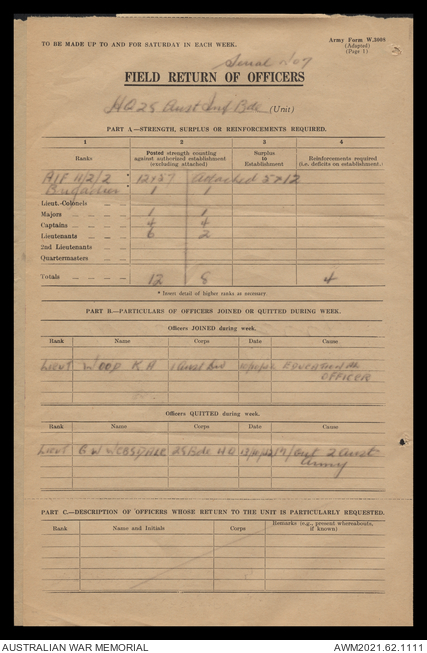 TO BE MADE UP TO AND FOR SATURDAY IN EACH WEEK.
Army Form W.3008
(Adapted)
(Page 1)
Serial No 7
FIELD RETURN OF OFFICERS
HQ 25 Aust Inf Bde (Unit)
PART A—STRENGTH, SURPLUS OR REINFORCEMENTS REQUIRED.
1 2 3 4
Ranks
Posted strength counting against authorized establishment (excluding attached)
Surplus to Establishment
Reinforcements required (i.e. deficits on establishment.)
AIF II/2/2 * 12+57 Attached 5+12
Brigadier * 1 1
Lieut.-Colonels
Majors 1 1
Captains 4 4
Lieutenants 6 2
2nd Lieutenants
Quartermasters
Totals 12 8 4
* Insert detail of higher ranks as necessary.
PART B.—PARTICULARS OF OFFICERS JOINED OR QUITTED DURING WEEK.
Officers JOINED during week.
Rank Name Corps Date Cause
Lieut WOOD K A 1 Aust EDUCATIONAL
OFFICER
Officers QUITTED during week.
Rank Name Corps Date Cause
Lieut G W 25 Bde HQ 13/10/42 2 Aust
Army
PART C.—DESCRIPTION OF OFFICERS WHOSE RETURN TO THE UNIT IS PARTICULARLY REQUESTED.
Rank Name and Initials Corps Remarks (e.g., present whereabouts, if known)
AUSTRALIAN WAR MEMORIAL
AWM2021.62.1111